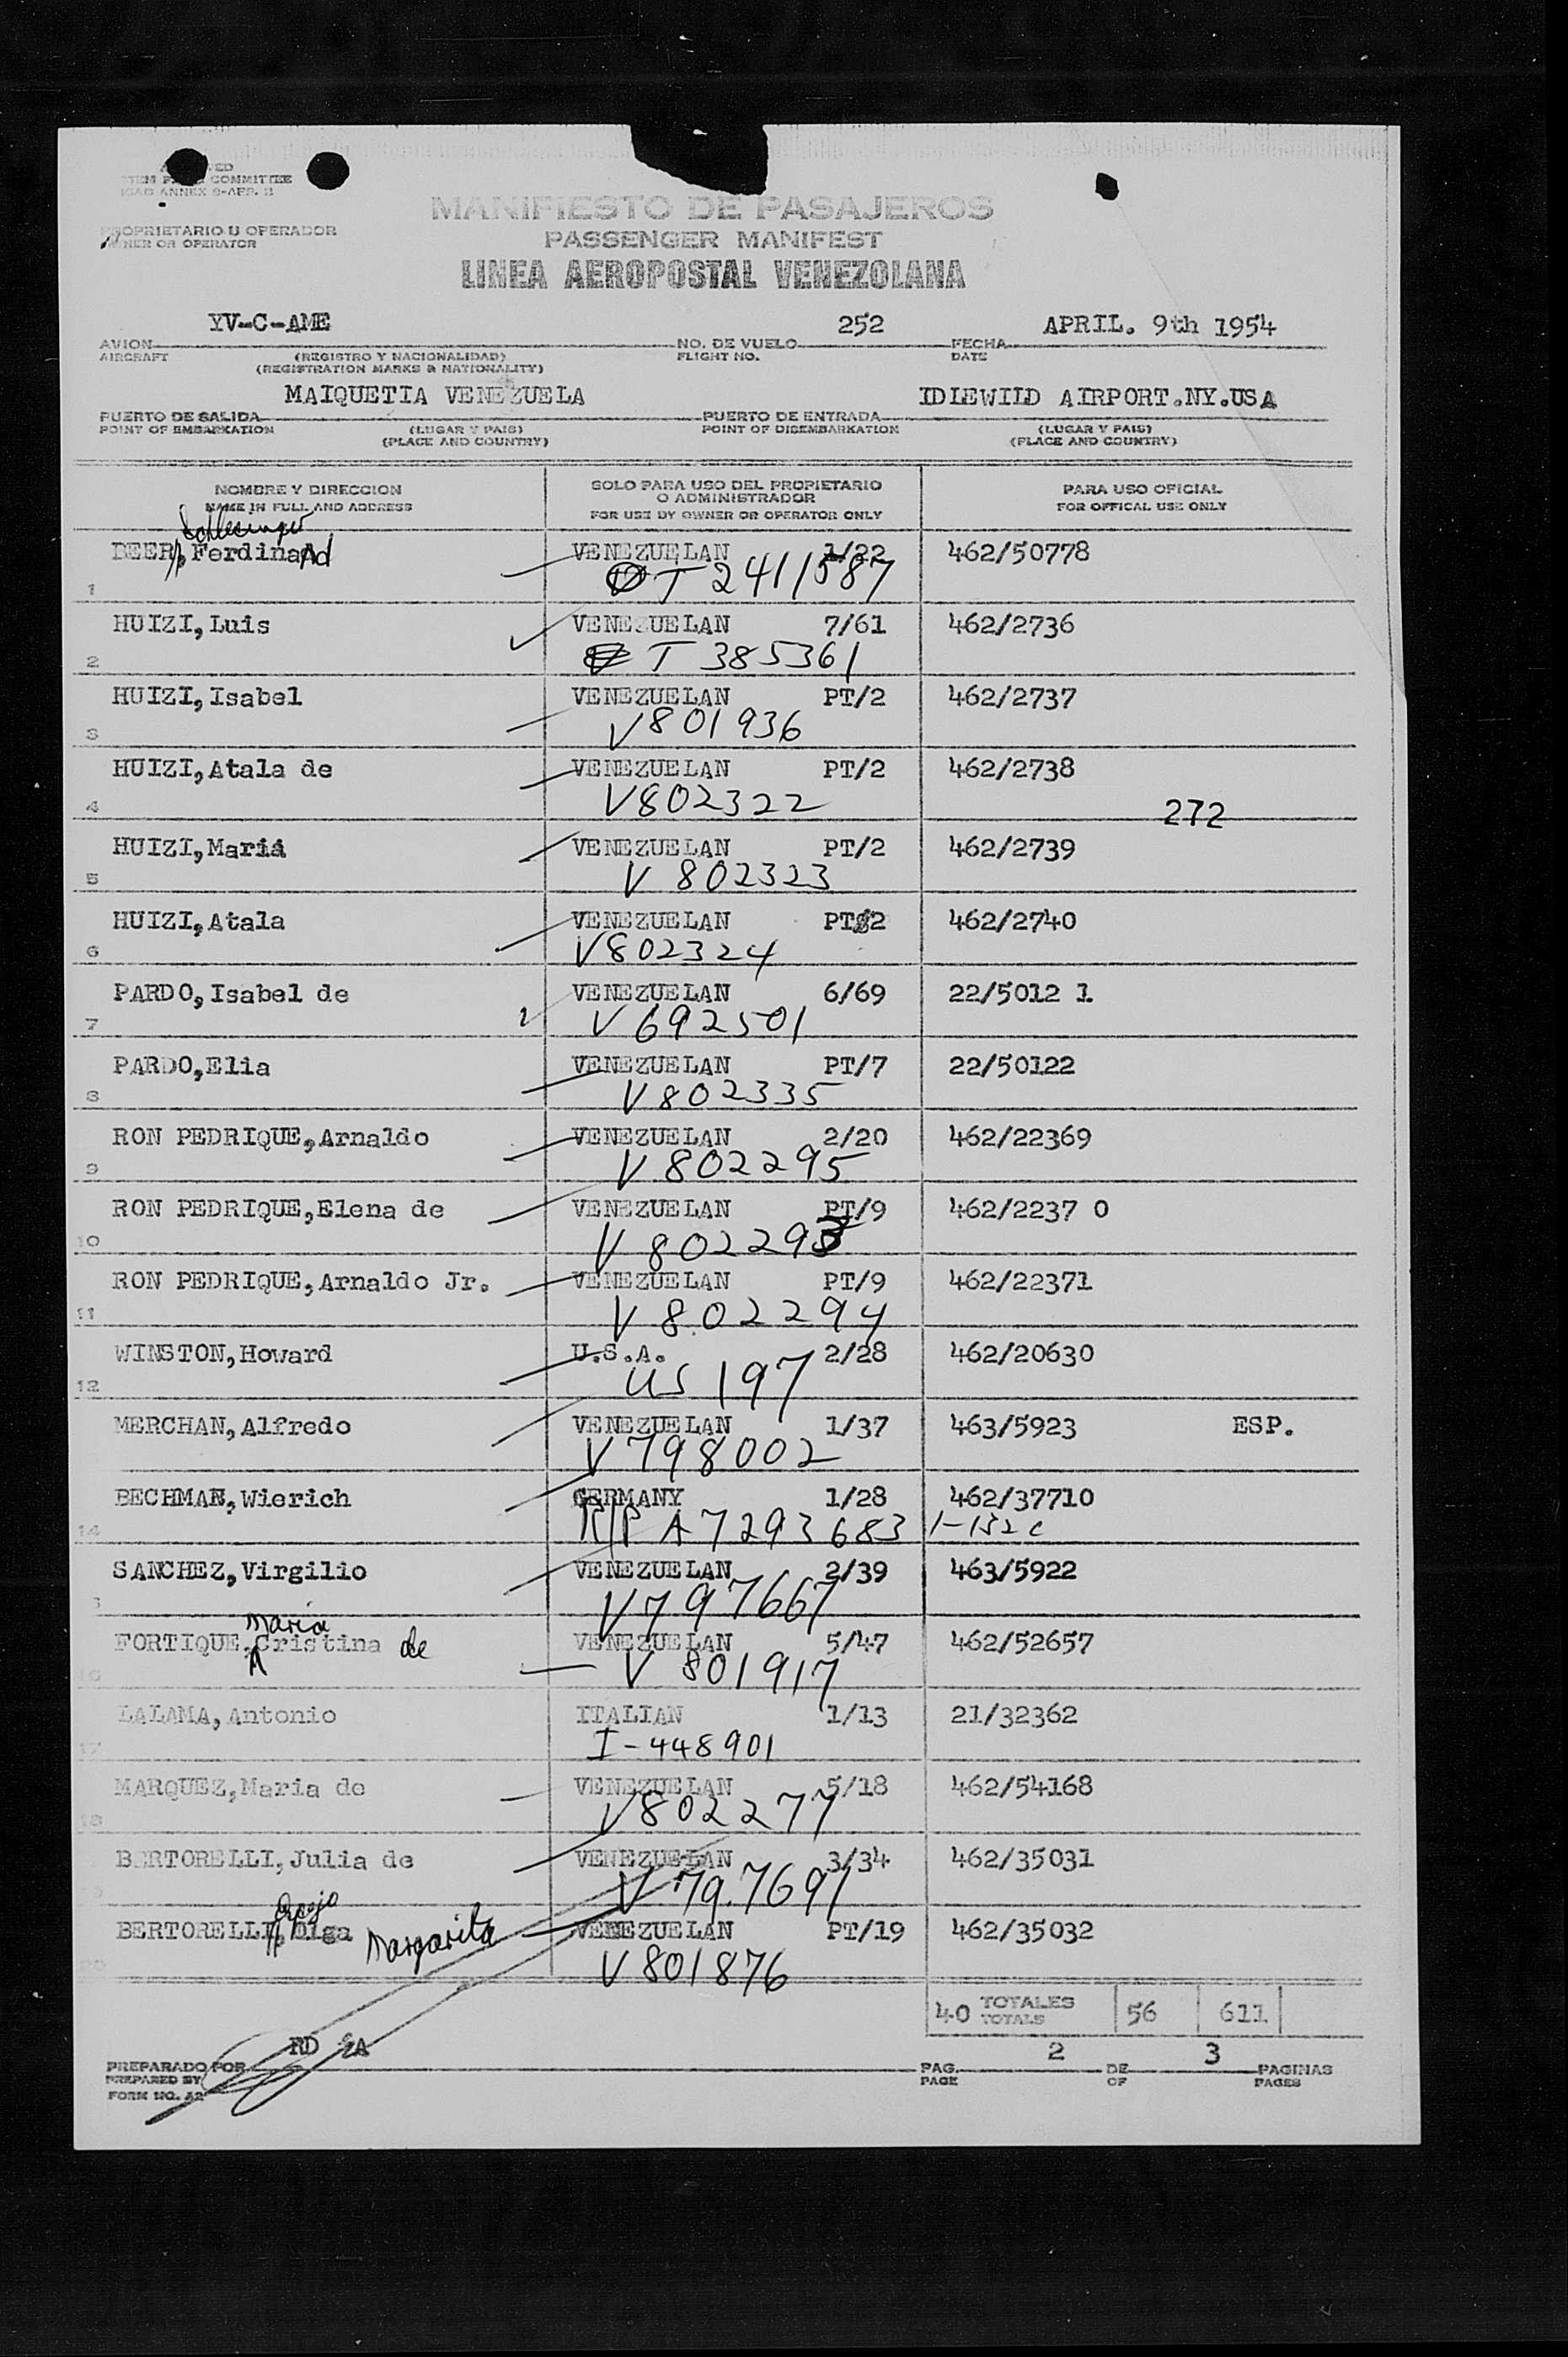 COMMITTEE
ICAO ANNEX 9-APP. 3
MANIFIESTO DE PASAJEROS
PROPRIETARIO U OPERADOR
OWNER OR OPERATOR
PASSENGER MANIFEST
LINEA AEROPOSTAL VENEZOLANA
YV-C-AME 252 APRIL. 9th 1954
AVION NO. DE VUELO FECHA
AIRCRAFT (REGISTRO Y NACIONALIDAD) FLIGHT NO. DATE
(REGISTRATION MARKS & NATIONALITY)
MAIQUETIA VENEZUELA IDLEWILD AIRPORT.NY.USA
PUERTO DE SALIDA PUERTO DE ENTRADA
POINT OF EMBARKATION (LUGAR Y PAIS) POINT OF DISEMBARKATION (LUGAR Y PAIS)
(PLACE AND COUNTRY) (PLACE AND COUNTRY)
NOMBRE Y DIRECCION SOLO PARA USO DEL PROPIETARIO PARA USO OFICIAL
O ADMINISTRADOR
NAME IN FULL AND ADDRESS FOR USE BY OWNER OR OPERATOR ONLY FOR OFFICAL USE ONLY
Schlesinger
DEER, Ferdinand VENEZUELAN 1/22 462/50778
1 T 2411587
HUIZI, Luis VENEZUELAN 7/61 462/2736
2 T 385361
HUIZI, Isabel VENEZUELAN PT/2 462/2737
3 V801936
HUIZI, Atala de VENEZUELAN PT/2 462/2738
4 V802322 272
HUIZI, Maria VENEZUELAN PT/2 462/2739
5 V 802323
HUIZI, Atala VENEZUELAN PT/2 462/2740
6 V802324
PARDO, Isabel de VENEZUELAN 6/69 22/5012 1
7 V692501
PARDO, Elia VENEZUELAN PT/7 22/50122
8 V802335
RON PEDRIQUE, Arnaldo VENEZUELAN 2/20 462/22369
9 V802295
RON PEDRIQUE, Elena de VENEZUELAN PT/9 462/2237 0
10 V802293
RON PEDRIQUE, Arnaldo Jr. VENEZUELAN PT/9 462/22371
11 V 802294
WINSTON, Howard U.S.A. 2/28 462/20630
12 US 197
MERCHAN, Alfredo VENEZUELAN 1/37 463/5923 ESP.
V798002
BECHMAN, Wierich GERMANY 1/28 462/37710
14 R/P A7293683 1-132c
SANCHEZ, Virgilio VENEZUELAN 2/39 463/5922
V797667
Maria
FORTIQUE, Cristina de VENEZUELAN 5/47 462/52657
16 V 801917
LALAMA, Antonio ITALIAN 1/13 21/32362
17 I-448901
MARQUEZ, Maria de VENEZUELAN 5/18 462/54168
18 V802277
BERTORELLI, Julia de VENEZUELAN 3/34 462/35031
V797691
BERTORELLI, Olga Margarita VENEZUELAN PT/19 462/35032
20 V801876
40 TOTALES 56 611
TOTALS
RD 2A 2 3
PREPARADO POR PAG. DE PAGINAS
PREPARED BY PAGE OF PAGES
FORM NO. A2